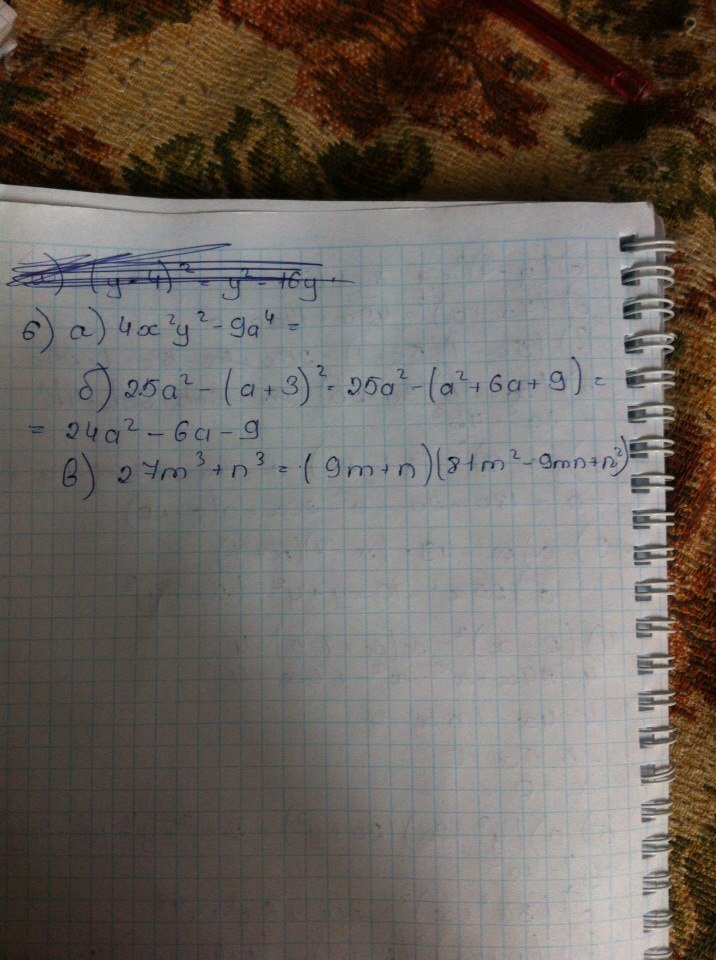 (y-4)² = y² - 16y
6) а) 4x²y² - 9a⁴ =
б) 25a² - (a+3)² = 25a² - (a² + 6a + 9) =
= 24a² - 6a - 9
в) 27m³ + n³ = (9m + n)(81m² - 9mn + n²)